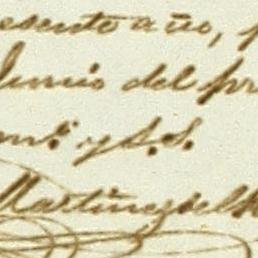 esente año, p
Junio del pr
y S.S.
Martinez del